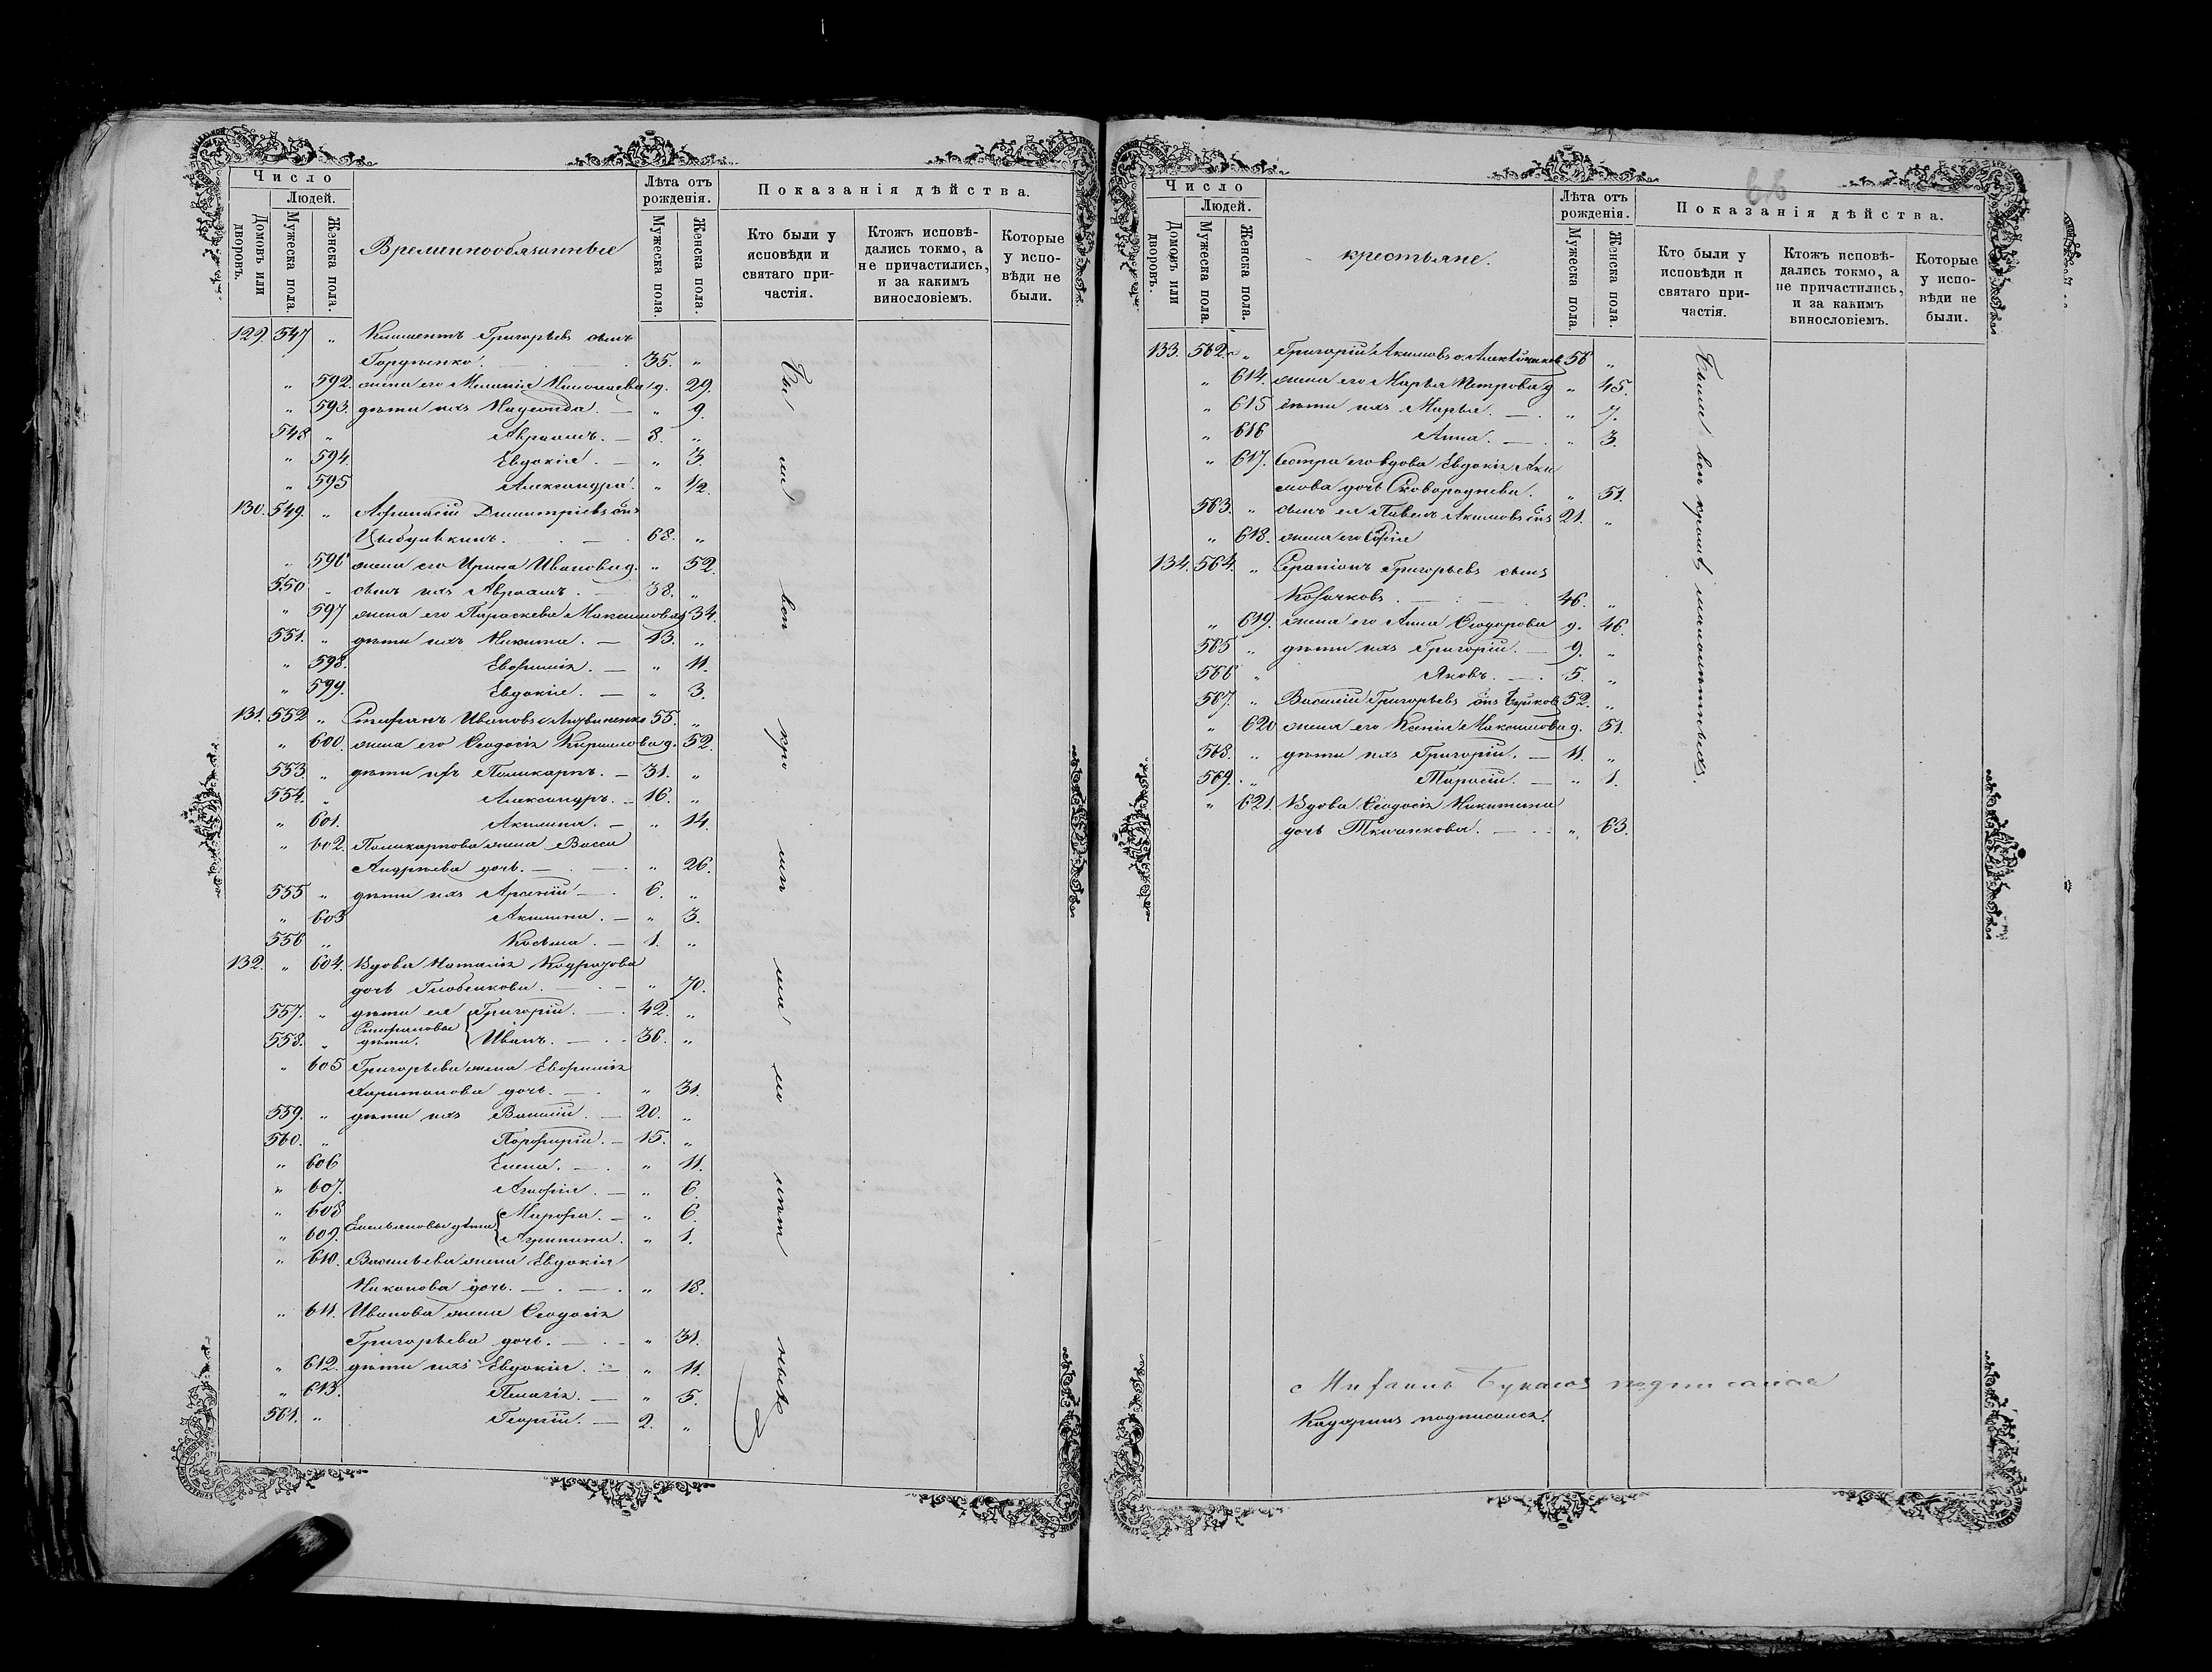 Число
Людей.
Домовъ или дворовъ.
Мужеска пола.
Женска пола.
Временнообязанные
Лѣта отъ рожденія.
Мужеска пола.
Женска пола.
Показанія дѣйства.
Кто были у исповѣди и святаго причастія.
Ктожъ исповѣдались токмо, а не причастились, и за какимъ винословіемъ.
Которые у исповѣди не были.
129. 547 „ Климентъ Григорьевъ сынъ
35. „
„ 592. жена его Меланія Николаева д. 29.
„ 593. дѣти ихъ — „ 9.
548 „ Авраамъ. — 8. „
„ 594. Евдокія. — „ 3.
„ 595 Александра. „ 1/2.
130. 549. „ Афанасій Димитріевъ снъ
68. „
„ 596 жена его Ирина Иванова д. „ 52.
550 „ сынъ ихъ Авраамъ. — 38. „
„ 597 жена его Параскева Максимова д 34.
551. „ дѣти ихъ Никита. — 13. „
„ 598. Евфимія. — „ 11.
„ 599. Евдокія. — „ 3.
131. 552 „ Стефанъ Ивановъ с Литвиненко 55. „
„ 600. жена его Феодосія Кирилова д. 52.
553. „ дѣти ихъ Поликарпъ. — 31. „
554. „ Александръ. — 16. „
„ 601. Акилина. — „ 14.
„ 602. Поликарпова жена Васса
Андреева дочь. — „ 26.
555 „ дѣти ихъ Арсеній — 6. „
„ 603 Акилина. — „ 3.
556 „ Косьма. — 1. „
132. „ 604. Вдова Наталія
дочь — „ 70.
557. „ дѣти ея Григорій. — 42. „
Стефановы дѣти.
558. „ Иванъ. — 36. „
„ 605 Григорьева жена Евфимія
Харитонова дочь. — „ 31.
559. „ дѣти ихъ Василій. — 20. „
560. „ Порфирій. — 15. „
„ 606 Елена. — „ 11.
„ 607. Агафія. — „ 6.
„ 608 Марфа. — „ 6.
Емельяновы дѣти
„ 609. Агрипина. „ 1.
„ 610. Васильева жена Евдокія
Никонова дочь. — „ 18.
„ 611. Иванова жена Феодосія
Григорьева дочь. — „ 31.
„ 612. дѣти ихъ Евдокія. — „ 11.
„ 613. Пелагія. — „ 5.
561. „ Георгій. — 2. „
Были вси кромѣ малолѣтныхъ
66
Число
Людей.
Домовъ или дворовъ.
Мужеска пола.
Женска пола.
крестьяне.
Лѣта отъ рожденія.
Мужеска пола.
Женска пола.
Показанія дѣйства.
Кто были у исповѣди и святаго причастія.
Ктожъ исповѣдались токмо, а не причастились, и за какимъ винословіемъ.
Которые у исповѣди не были.
133. 562. „ Григорій Акимовъ с. 56 „
„ 614. жена его Марья Петрова д „ 45.
„ 615 дѣти ихъ Марья. — „ 7.
„ 616 Анна. — „ 3.
„ 617. Сестра его вдова Евдокія Аки
мова дочь Сковороднева. „ 51.
563. „ сынъ ея Павелъ Акимовъ снъ 21. „
„ 618. жена его Софія
134. 564. „ Серапіонъ Григорьевъ сынъ
Козачковъ. — 46. „
„ 619. жена его Анна Феодорова д. 46.
565 „ дѣти ихъ Григорій. — 9. „
566 „ Яковъ. — 5. „
567. „ Василій Григорьевъ снъ 52. „
„ 620 жена его Ксенія Максимова д. 51.
568. „ дѣти ихъ Григорій. — 11. „
569. „ Тарасій. — „ 1.
„ 621. Вдова Феодосія Никитина
дочь Ткаченкова. — „ 63.
Были вси кромѣ малолѣтныхъ.
подписался
подписался.